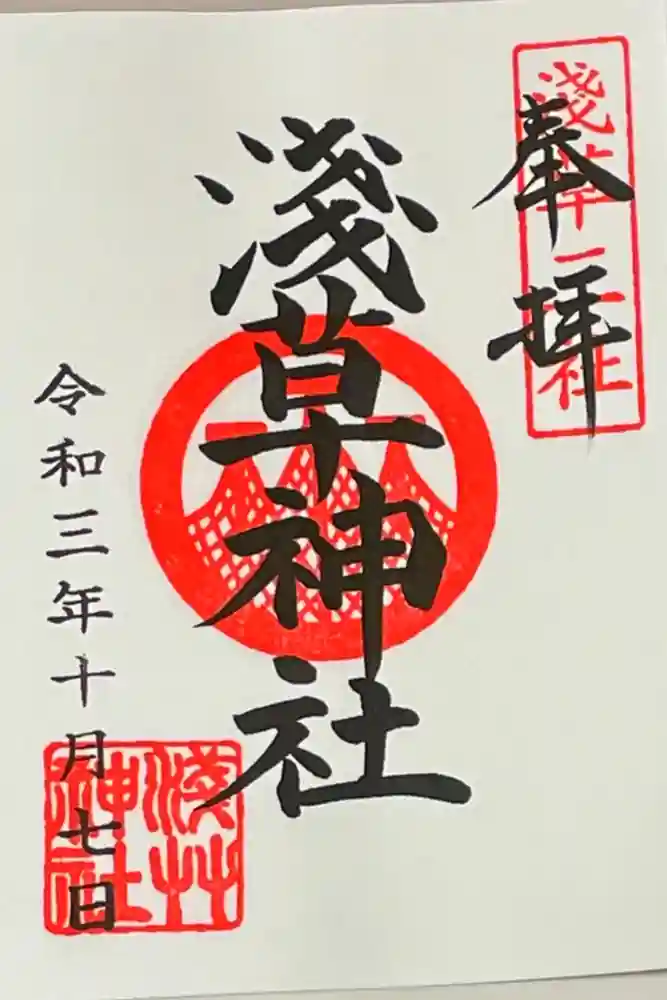 奉拝
淺草三社
淺草神社
令和三年十月七日
淺艸神社